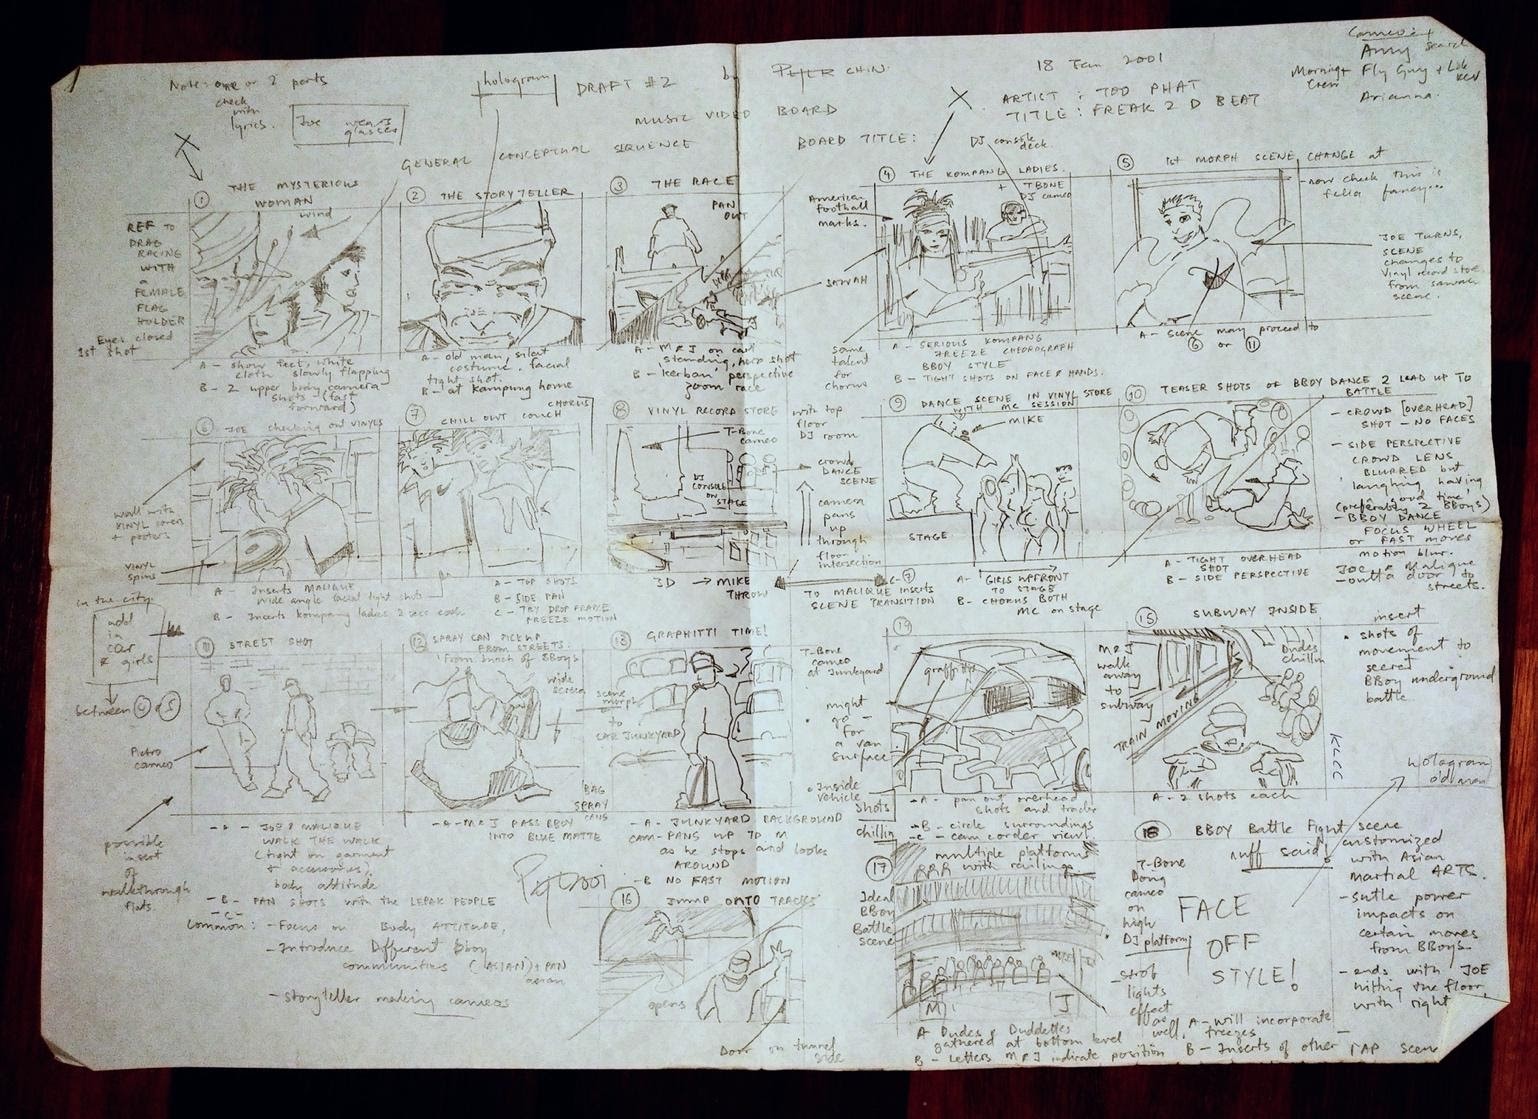 Note: one or 2 parts
check
with
lyrics.
Joe wears
glasses
hologram
DRAFT #2 by PETER CHIN.
18 Jan 2001
MUSIC VIDEO BOARD
ARTIST : TOO PHAT
TITLE : FREAK 2 D BEAT
BOARD TITLE:
GENERAL CONCEPTUAL SEQUENCE
Cameo:
Amy Search
Morning Crew
Fly Guy +
Arianna.
① THE MYSTERIOUS
WOMAN
wind
REF TO
DRAG
RACING
WITH
a
FEMALE
FLAG
HOLDER
Eyes closed
1st shot
A - show feet, white
cloth slowly flapping
B - 2 upper body camera
shots (fast
forward)
② THE STORYTELLER
A - old man, silat
costume, facial
tight shot.
B - at kampung home
③ THE RACE
PAN
OUT
A - M & J on car
standing, hero shot
B - 'kerban' perspective
zoom race
④ THE KOMPANG LADIES.
+ TBONE
DJ cameo
DJ console
deck.
American
football
marks.
SAWAH
same
talent
for
chorus
A - SERIOUS KOMPANG
FREEZE CHOREOGRAPH
BBOY STYLE
B - TIGHT SHOTS ON FACE & HANDS.
⑤ 1st MORPH SCENE CHANGE at
- now check this is
fella fancy...
JOE TURNS,
SCENE
changes to
Vinyl record store
from sawah
scene.
A - Scene may proceed to
⑥ or ⑪
⑥ JOE checking out VINYLS
wall with
VINYL covers
+ posters
VINYL
spins
A - Inserts MALIQUE
wide angle facial tight shots
B - Inserts kompang ladies 2 secs each
⑦ CHILL OUT COUCH
CHORUS
A - TOP SHOTS
B - SIDE PAN
C - TRY DROP FRAME
FREEZE MOTION
⑧ VINYL RECORD STORE
T-Bone
cameo
DJ
CONSOLE
ON
STAGE
3D → MIKE
THROW
with top
floor
DJ room
crowd
DANCE
SCENE
camera
pans
up
through
floor
intersection
TO MALIQUE inserts
SCENE TRANSITION
⑨ DANCE SCENE IN VINYL STORE
WITH MC SESSION
MIKE
STAGE
A - GIRLS UPFRONT
TO STAGE
B - CHORUS BOTH
MC on stage
⑩ TEASER SHOTS OF BBOY DANCE 2 LEAD UP TO
BATTLE
A - TIGHT OVERHEAD
SHOT
B - SIDE PERSPECTIVE
- CROWD [OVERHEAD]
SHOT - NO FACES
- SIDE PERSPECTIVE
CROWD LENS
BLURRED but
laughing having
good time
(preferably 2 BBoys)
- BBOY DANCE
FOCUS WHEEL
or FAST MOVES
motion blur.
Joe & Malique
- out a door to
streets.
in the city.
add
in
car
& girls
between ④ & ⑤
⑪ STREET SHOT
Pietro
cameo
possible
insert
of
walkthrough
flats.
- A - JOE & MALIQUE
WALK THE WALK
(tight on garment
+ accessories,
body attitude
- B - PAN SHOTS with the LEPAK PEOPLE
- C -
Common: - Focus on Body ATTITUDE,
- Introduce Different bboy
communities (ASIAN) + PAN
asian
- storyteller making cameos
⑫ SPRAY CAN PICKUP
FROM STREETS
from bunch of BBoys
wide
screen
BAG
SPRAY
CANS
- A - M & J PASS BBOY
INTO BLUE MATTE
⑬ GRAPHITTI TIME!
scene
morph
to
CAR JUNKYARD
- A - JUNKYARD BACKGROUND
CAM-PANS UP TO M
as he stops and looks
AROUND
- B NO FAST MOTION
⑭
T-Bone
cameo
at Junkyard
graffiti
might
go
for
a van
surface
Inside
vehicle
shots
chillin
- A - pan out overhead
shots and tracker
- B - circle surroundings
- C - camcorder view.
⑮ SUBWAY INSIDE
M & J
walk
away
to
subway
TRAIN MOVING
Dudes
chillin
KLCC
A - 2 shots each
insert
• shots of
movement to
secret
BBoy underground
battle.
hologram
old man
⑯ JUMP ONTO TRACKS
opens
Door on tunnel
side
⑰ multiple platforms
with railings
Ideal
BBoy
Battle
scene
M
J
A Dudes & Duddettes
gathered at bottom level
B - Letters M & J indicate position
⑱ BBOY Battle Fight scene
nuff said!
T-Bone
Dong
cameo
on
high
DJ platform
- strob
lights
effect
as
well.
FACE
OFF
STYLE!
A - will incorporate
freezes
B - Inserts of other RAP scene
customized
with Asian
martial ARTS.
- sutle power
impacts on
certain moves
from BBoys
- ends with JOE
hitting the floor,
with right